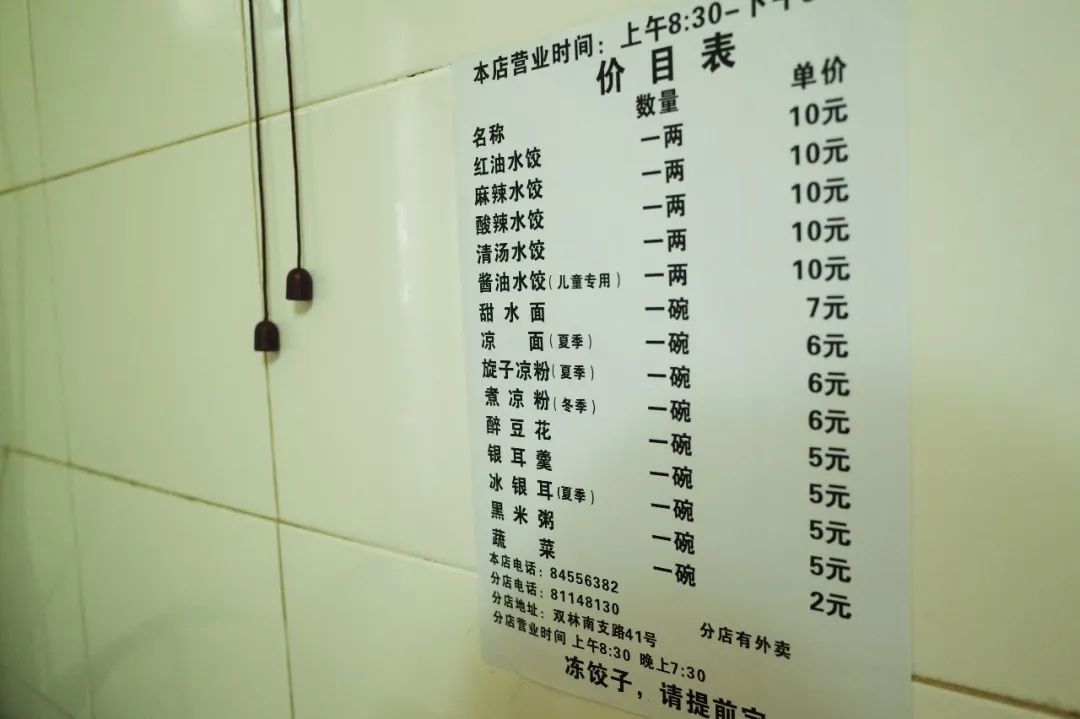 本店营业时间：上午8:30-下午
价目表
名称 数量 单价
红油水饺 一两 10元
麻辣水饺 一两 10元
酸辣水饺 一两 10元
清汤水饺 一两 10元
酱油水饺(儿童专用) 一两 10元
甜水面 一碗 7元
凉面(夏季) 一碗 6元
旋子凉粉(夏季) 一碗 6元
煮凉粉(冬季) 一碗 6元
醉豆花 一碗 5元
银耳羹 一碗 5元
冰银耳(夏季) 一碗 5元
黑米粥 一碗 5元
蔬菜 一碗 2元
本店电话：84556382
分店电话：81148130
分店地址：双林南支路41号 分店有外卖
分店营业时间 上午8:30 晚上7:30
冻饺子，请提前